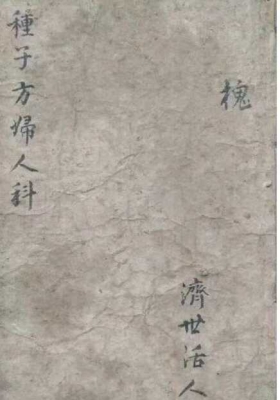 槐
濟世活人
種子方婦人科